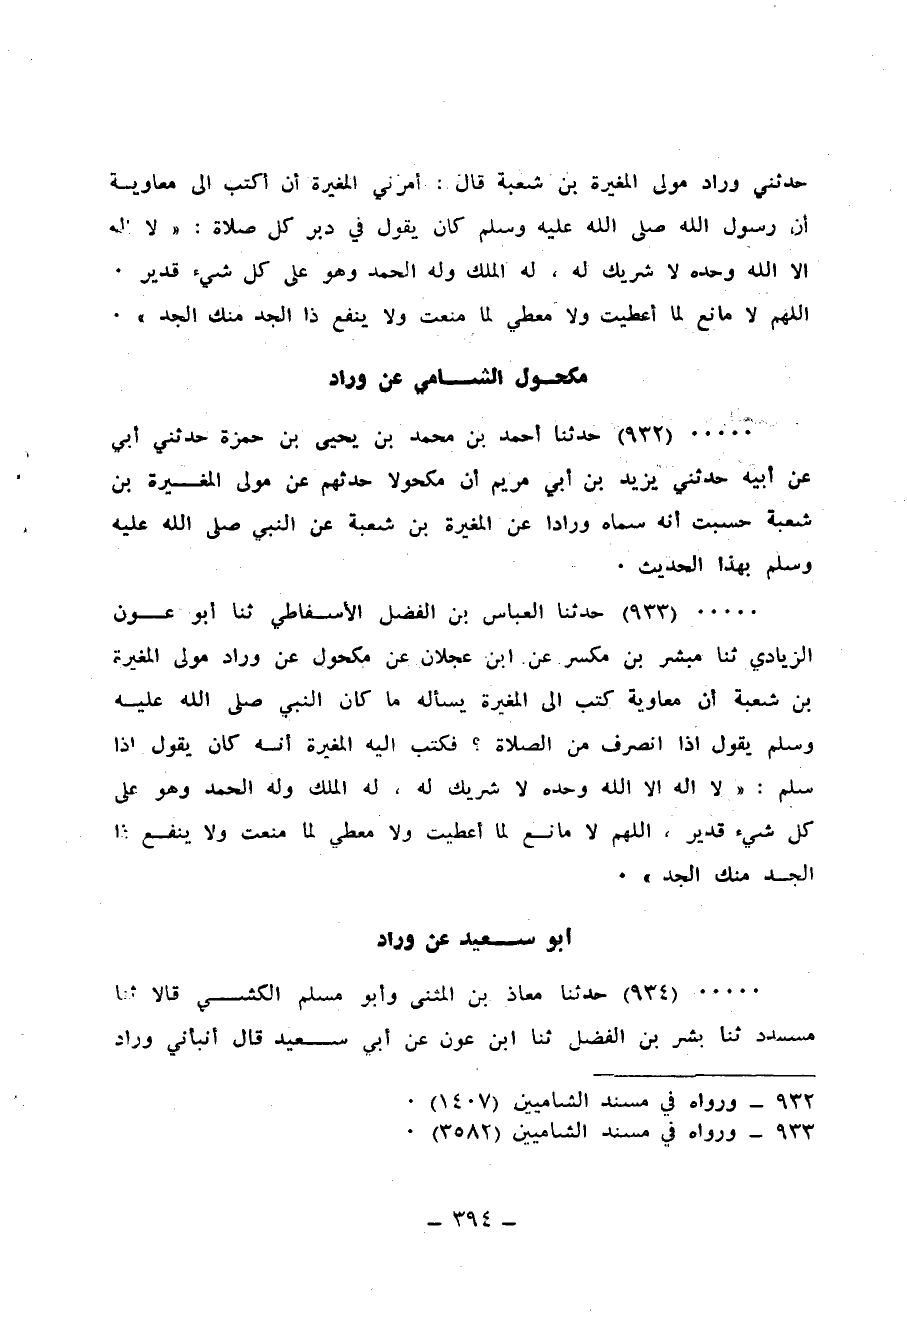 حدثني وراد مولى المغيرة بن شعبة قال : أمرني المغيرة أن أكتب الى معاويــة
أن رسول الله صلى الله عليه وسلم كان يقول في دبر كل صلاة : « لا اله
الا الله وحده لا شريك له ، له الملك وله الحمد وهو على كل شيء قدير ٠
اللهم لا مانع لما أعطيت ولا معطي لما منعت ولا ينفع ذا الجد منك الجد » ٠
مكحــول الشــــامي عن وراد
٠٠٠٠٠ (٩٣٢) حدثنا أحمد بن محمد بن يحيى بن حمزة حدثني أبي
عن أبيه حدثني يزيد بن أبي مريم أن مكحولا حدثهم عن مولى المغــــيرة بن
شعبة حسبت أنه سماه ورادا عن المغيرة بن شعبة عن النبي صلى الله عليه
وسلم بهذا الحديث ٠
٠٠٠٠٠ (٩٣٣) حدثنا العباس بن الفضل الأســفاطي ثنا أبو عــــون
الزيادي ثنا مبشر بن مكسر عن ابن عجلان عن مكحول عن وراد مولى المغيرة
بن شعبة أن معاوية كتب الى المغيرة يسأله ما كان النبي صلى الله عليــه
وسلم يقول اذا انصرف من الصلاة ؟ فكتب اليه المغيرة أنــه كان يقول اذا
سلم : « لا اله الا الله وحده لا شريك له ، له الملك وله الحمد وهو على
كل شيء قدير ، اللهم لا مانــع لما أعطيت ولا معطي لما منعت ولا ينفــع ذا
الجــد منك الجد » ٠
أبو ســــعيد عن وراد
٠٠٠٠٠ (٩٣٤) حدثنا معاذ بن المثنى وأبو مسلم الكشــــي قالا ثنا
مسـدد ثنا بشر بن الفضل ثنا ابن عون عن أبي ســــعيد قال أنبأني وراد
٩٣٢ ــ ورواه في مسند الشاميين (١٤٠٧) ٠
٩٣٣ ــ ورواه في مسند الشاميين (٣٥٨٢) ٠
ــ ٣٩٤ ــ